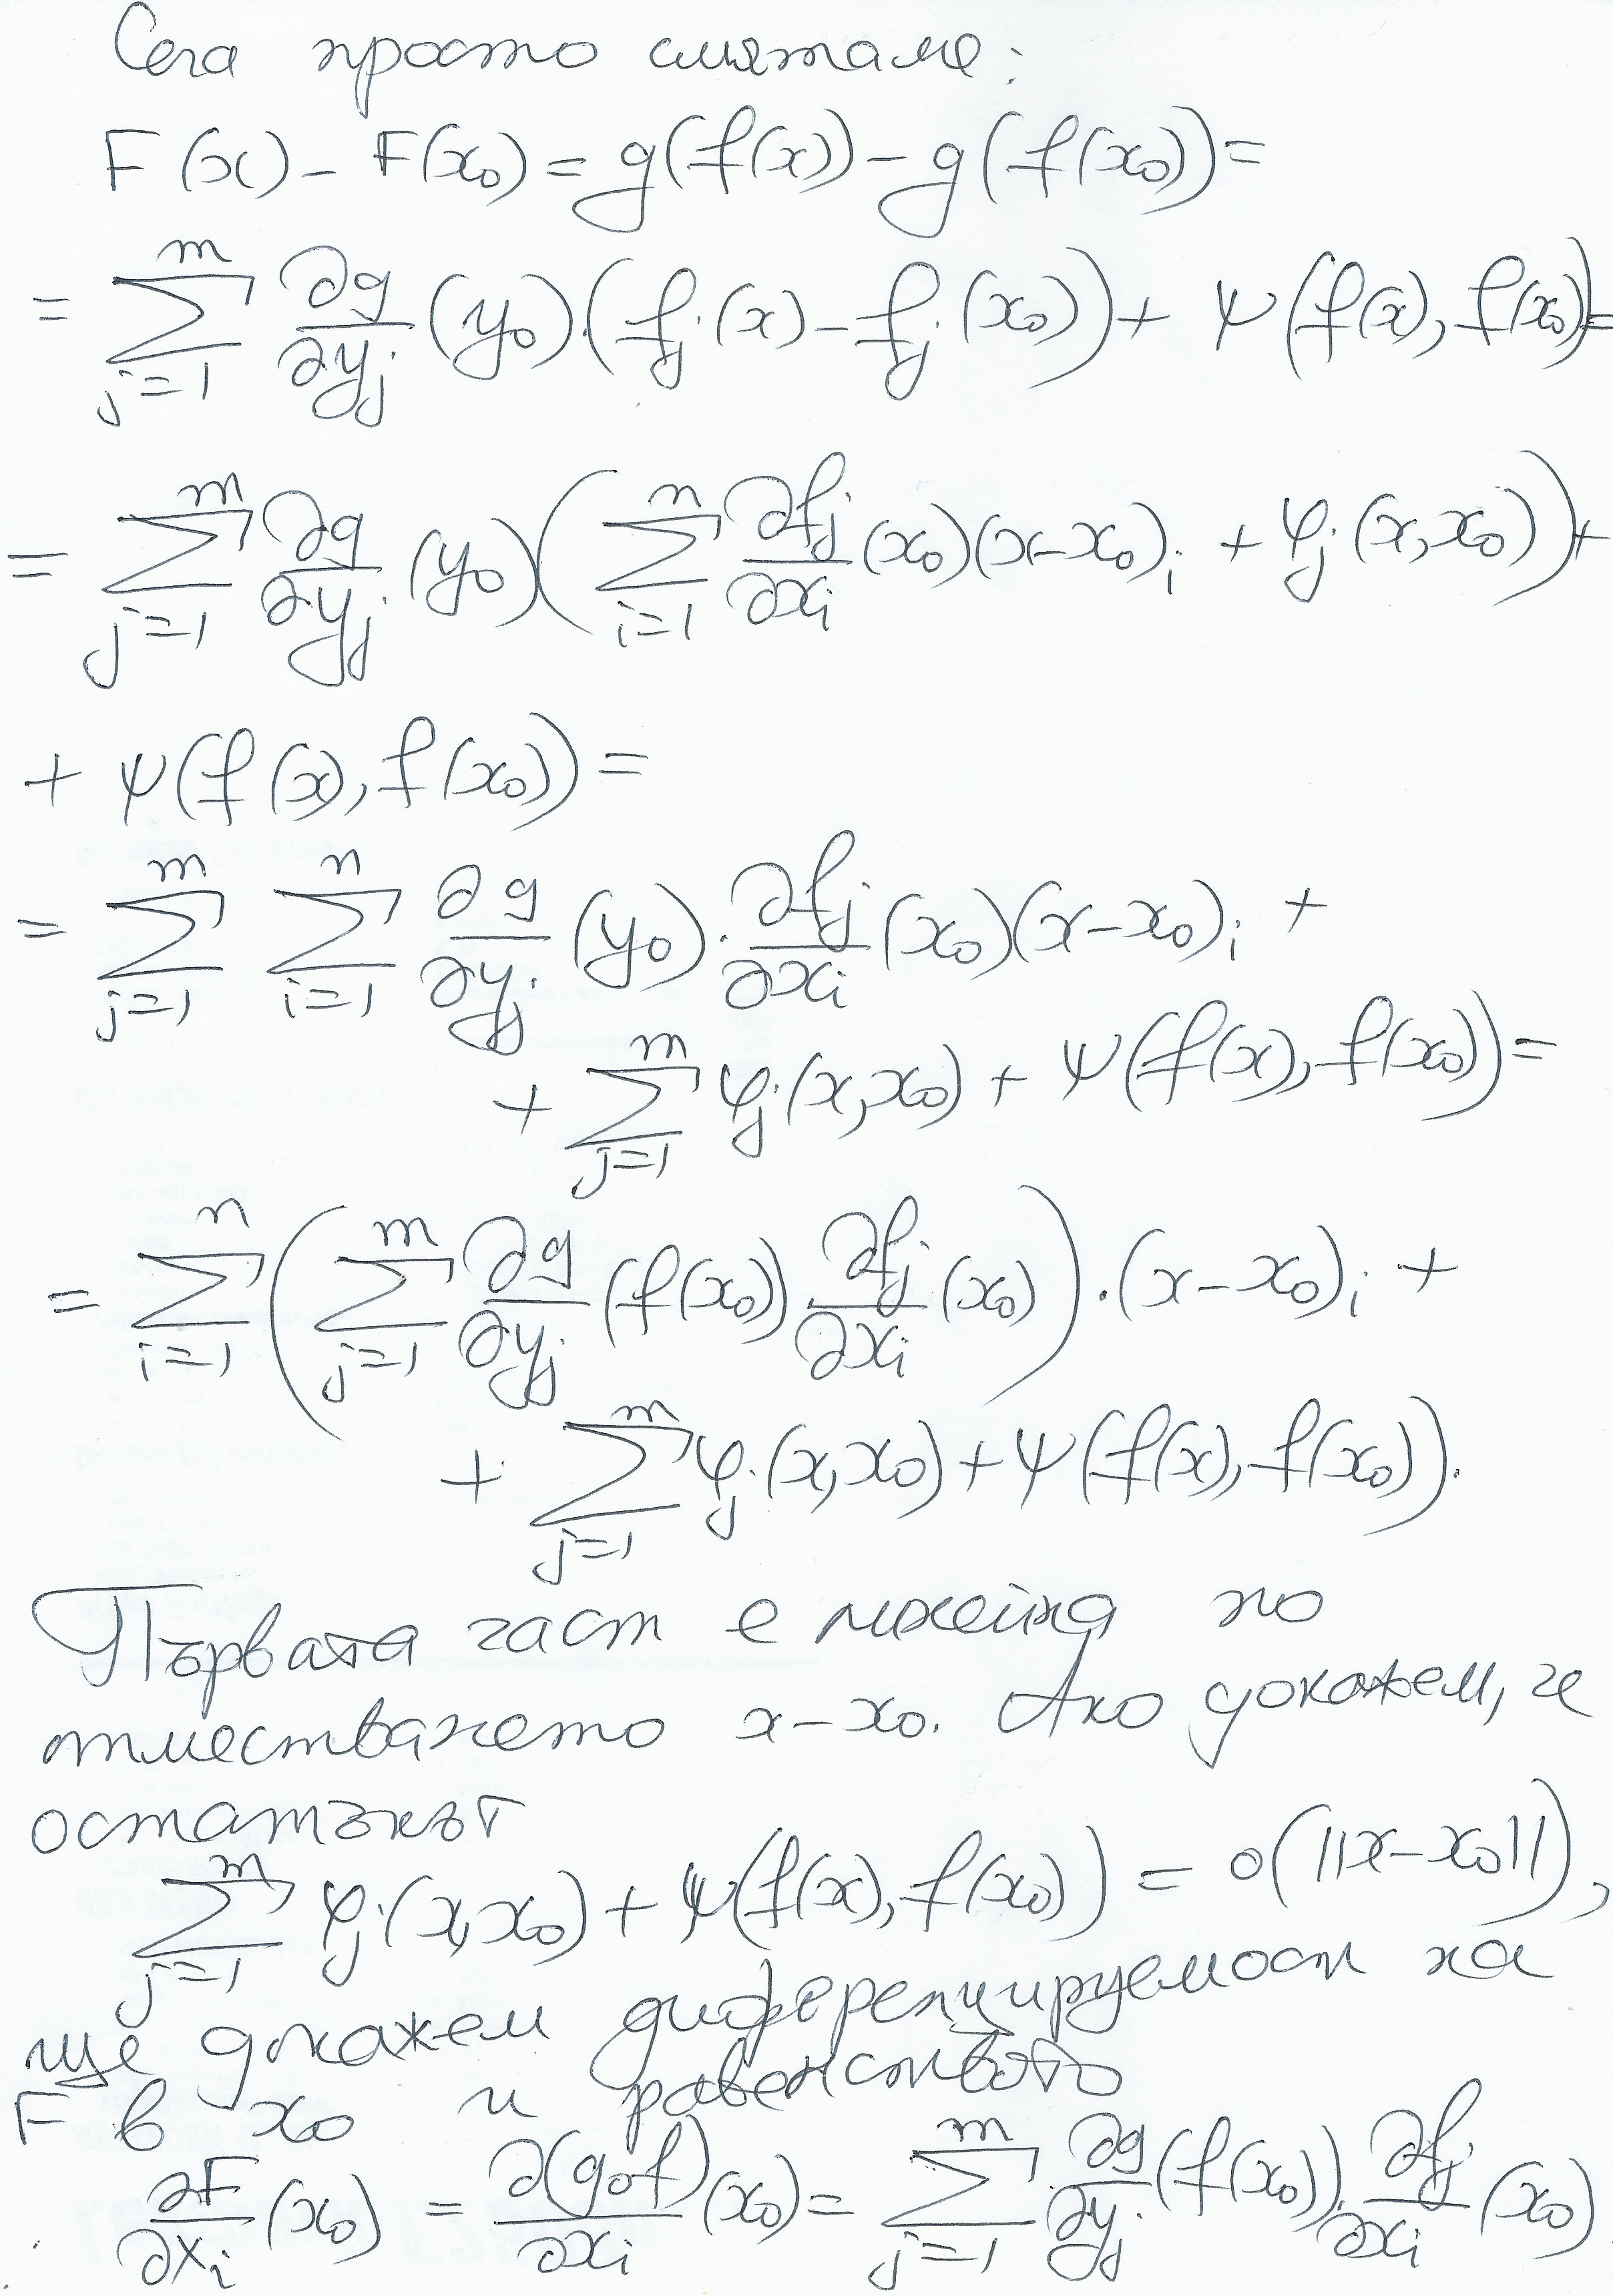 Сега просто смятаме:
F(x) - F(x₀) = g(f(x)) - g(f(x₀)) =
= ∑_{j=1}^{m} ∂g/∂y_j (y₀)·(f_j(x) - f_j(x₀)) + ψ(f(x), f(x₀)) =
= ∑_{j=1}^{m} ∂g/∂y_j (y₀) (∑_{i=1}^{n} ∂f_j/∂x_i (x₀)(x-x₀)_i + φ_j(x, x₀)) +
+ ψ(f(x), f(x₀)) =
= ∑_{j=1}^{m} ∑_{i=1}^{n} ∂g/∂y_j (y₀) · ∂f_j/∂x_i (x₀)(x-x₀)_i +
+ ∑_{j=1}^{m} φ_j(x, x₀) + ψ(f(x), f(x₀)) =
= ∑_{i=1}^{n} (∑_{j=1}^{m} ∂g/∂y_j (f(x₀)) ∂f_j/∂x_i (x₀)) · (x-x₀)_i +
+ ∑_{j=1}^{m} φ_j(x, x₀) + ψ(f(x), f(x₀)).
Първата част е линейна по
отместването x-x₀. Ако докажем, че
остатъкът
∑_{j=1}^{m} φ_j(x, x₀) + ψ(f(x), f(x₀)) = o(||x-x₀||),
ще докажем диференцируемост на
F в x₀ и равенството
∂F/∂x_i (x₀) = ∂(g∘f)/∂x_i (x₀) = ∑_{j=1}^{m} ∂g/∂y_j (f(x₀)) · ∂f_j/∂x_i (x₀)